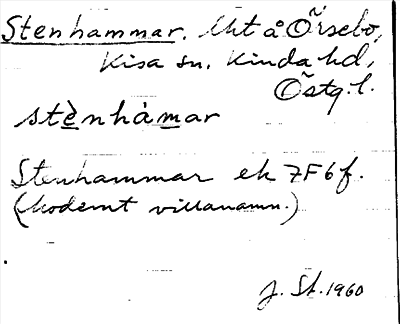 Stenhammar. Lht å Örsebo,
Kisa sn. Kinda hd,
Östg. l.
stènhámar
Stenhammar ek 7F6f.
(Modernt villanamn.)
J. St. 1960